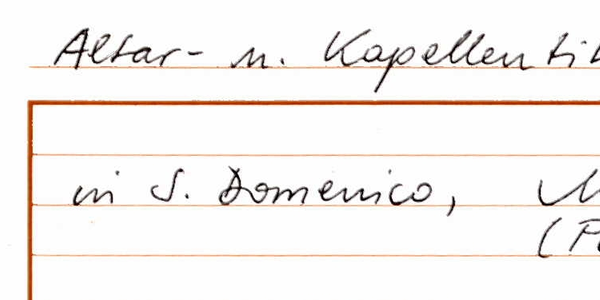 Altar- u. Kapellen
in S. Domenico,